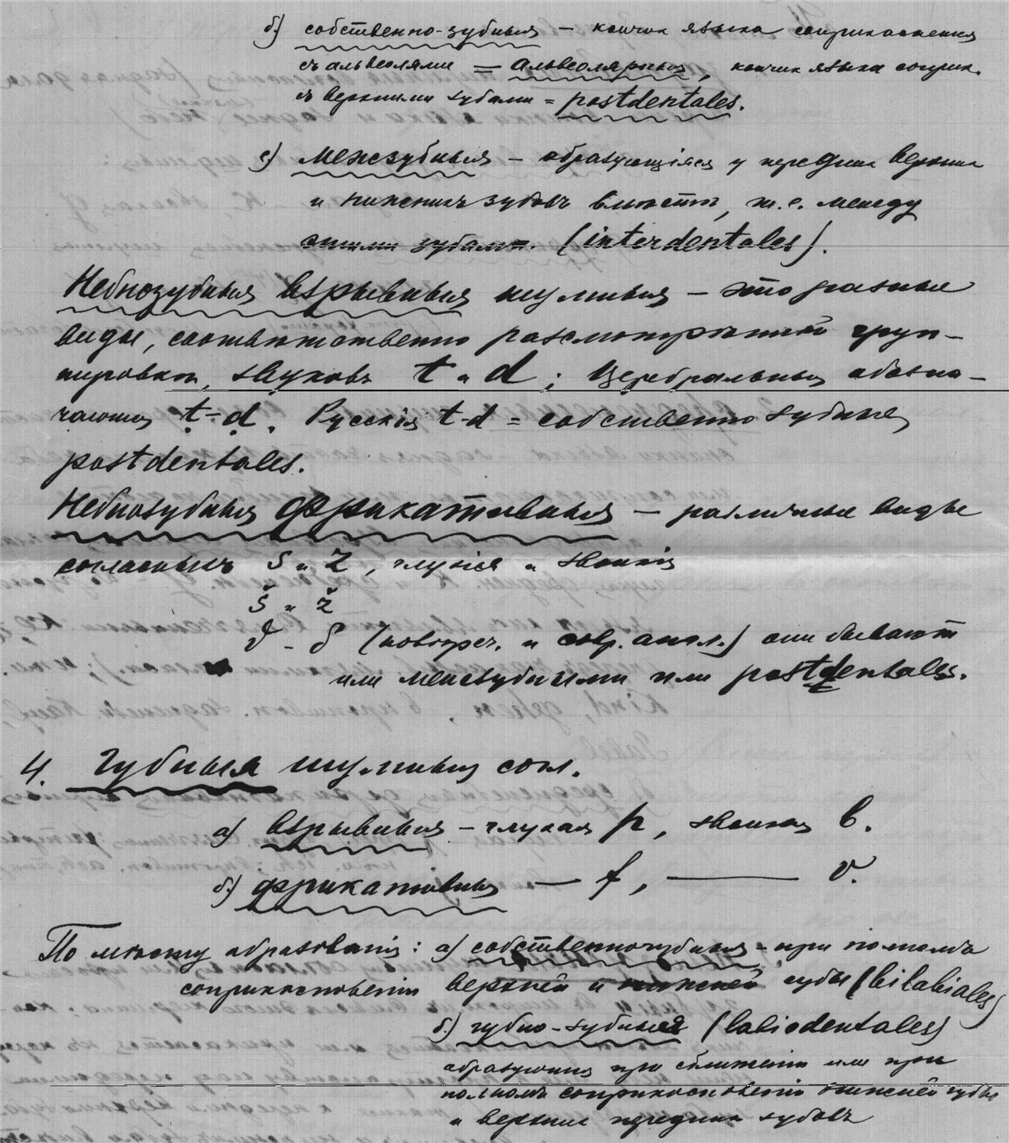 б) собственно-зубныя – кончик языка соприкасается
съ альвеолями = альвеолярныя, кончик языка соприк.
съ верхними зубами = postdentales.
с) межзубныя – образующіяся у передних верхних
и нижнихъ зубовъ вместѣ, т.е. между
этими зубами. (interdentales).
Небнозубныя взрывныя шумныя – это разные
виды, соотвѣтственно разсмотрѣнной груп-
пировкѣ, звуковъ t и d; Церебральныя обозна-
чаются ṭ-ḍ. Русскія t-d = собственно зубные
postdentales.
Небнозубныя фрикативныя – различные виды
согласныхъ s и z, глухія и звонкія
š и ž
ϑ - δ (новогреч. и совр. англ.) они бывают
или межзубными или postdentales.
4. Губныя шумныя согл.
а) взрывныя – глухая p, звонкая b.
б) фрикативныя — f, ——— v.
По мѣсту образованія: а) собственногубныя – при полномъ
соприкосновеніи верхней и нижней губы (bilabiales)
б) губно-зубныя (labiodentales)
образующияся при сближеніи или при
полномъ соприкосновеніи нижней губы
и верхних передних зубовъ